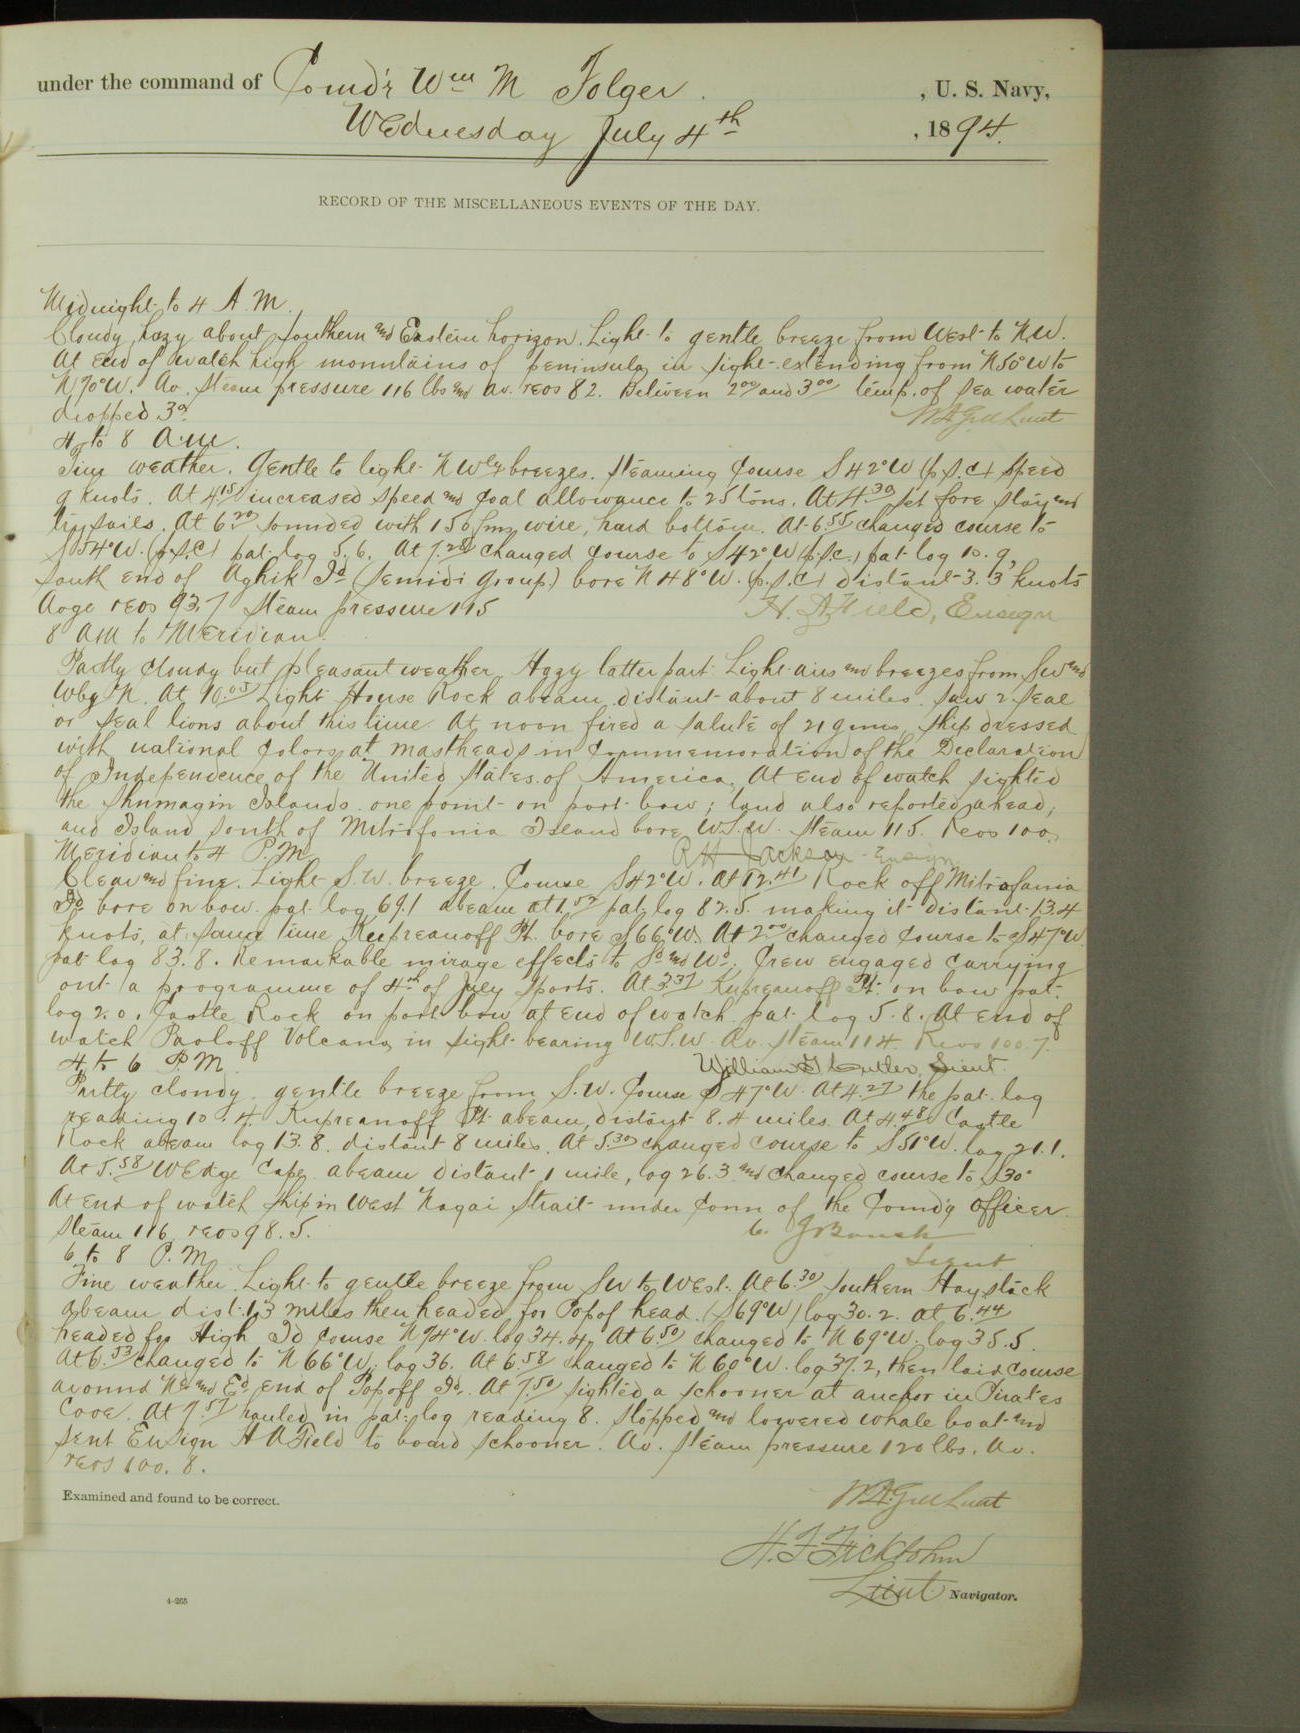 under the command of Comd'r Wm M Folger , U. S. Navy,
Wednesday July 4th , 1894.
RECORD OF THE MISCELLANEOUS EVENTS OF THE DAY.
Midnight to 4 A. M.
Cloudy, hazy about Southern and Eastern horizon. Light to gentle breeze from West to N.W.
At end of watch high mountains of peninsula in sight extending from N50°W to
N70°W. Av. Steam pressure 116 lbs and av. revs 82. Between 2.00 and 3.00 temp. of sea water
dropped 3°. W.A. Gill Lieut
4 to 8 A.M.
Fine weather. Gentle to light NWly breezes. Steaming Course S42°W (p.s.c.) speed
9 knots. At 4.15 increased speed and coal allowance to 25 tons. At 4.30 set fore stay and
try sails. At 6.20 sounded with 150 fms wire, hard bottom. At 6.55 changed course to
S54°W. (p.s.c.) pat. log 5.6. At 7.28 changed course to S42°W (p.s.c.) pat. log 10.9,
South end of Aghik Id (Semidi Group) bore N48°W. (p.s.c.) distant 3.3 knots
Avge revs 93.7 Steam pressure 115 H. A Field, Ensign
8 AM to Meridian.
Partly cloudy but pleasant weather. Hazy latter part. Light airs and breezes from SW and
WbyN. At 10.05 Light House Rock abeam distant about 8 miles. Saw 2 seal
or seal lions about this time. At noon fired a salute of 21 guns, ship dressed
with national colors at mastheads in commemoration of the Declaration
of Independence of the United States of America. At end of watch sighted
the Shumagin Islands one point on port bow; land also reported ahead,
and Island South of Mitrofonia Island bore W.S.W. Steam 115. Revs 100.
R H Jackson - Ensign
Meridian to 4 P.M.
Clear and fine. Light S.W. breeze. Course S42°W. At 12.41 Rock off Mitrofania
Id bore on bow. pat. log 69.1 abeam at 1.52 pat. log 82.5. making it distant 13.4
knots, at same time Kupreanoff Pt. bore S66°W. At 2.00 changed course to S47°W
pat log 83.8. Remarkable mirage effects to Sd and Wd. Crew engaged carrying
out a programme of 4th of July Sports. At 3.37 Kupreanoff Pt. on bow pat.
log 2.0. Castle Rock on port bow at end of watch pat. log 5.8. At end of
watch Pavloff Volcano in sight bearing W.S.W. Av. Steam 114. Revs 100.7.
4 to 6 P.M. William G Cutler, Lieut.
Partly cloudy. gentle breeze from S.W. Course S47°W. At 4.27 the pat. log
reading 10.4. Kupreanoff Pt. abeam, distant 8.4 miles. At 4.48 Castle
Rock abeam log 13.8. distant 8 miles. At 5.30 changed course to S51°W. log 21.1.
At 5.58 Wedge Cape abeam distant 1 mile, log 26.3 and changed course to S30°
At end of watch ship in West Nagai Strait under Conn of the Comd'g Officer.
Steam 116, revs 98.5. C. J Boush
Lieut
6 to 8 P.M.
Fine weather. Light to gentle breeze from SW to West. At 6.30 Southern Haystack
abeam dist 1.3 miles then headed for Popof head. (S69°W) log 30.2. at 6.44
headed for High Id course N74°W. log 34.4. At 6.50 changed to N69°W. log 35.5.
At 6.53 changed to N66°W, log 36. At 6.58 changed to N60°W. log 37.2, then laid course
around Nd and Ed end of Popoff Id. At 7.50 sighted a schooner at anchor in Pirates
Cove. At 7.57 hauled in pat. log reading 8. Stopped and lowered whale boat and
sent Ensign H A Field to board schooner. Av. steam pressure 120 lbs. Av.
revs 100.8.
Examined and found to be correct. W.A. Gill Lieut
H. F. Fickbohm
Lieut Navigator.
4-265